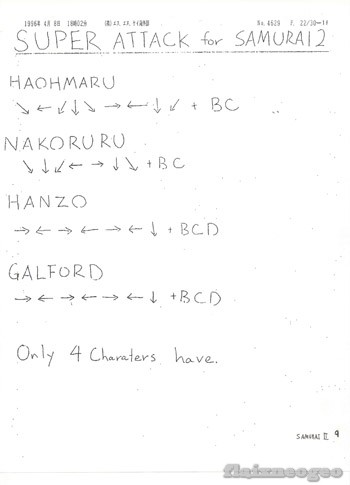 1996年 4月 8日 18時02分
No.4629 P. 22/30
SUPER ATTACK for SAMURAI 2
HAOHMARU
↘ ← ↙ ↓ ↘ → ← ↓ ↙ + BC
NAKORURU
↘ ↓ ↙ ← → ↓ ↘ + BC
HANZO
→ ← → ← → ← ↓ + BCD
GALFORD
→ ← → ← → ← ↓ +BCD
Only 4 Charaters have.
SAMURAI II 9